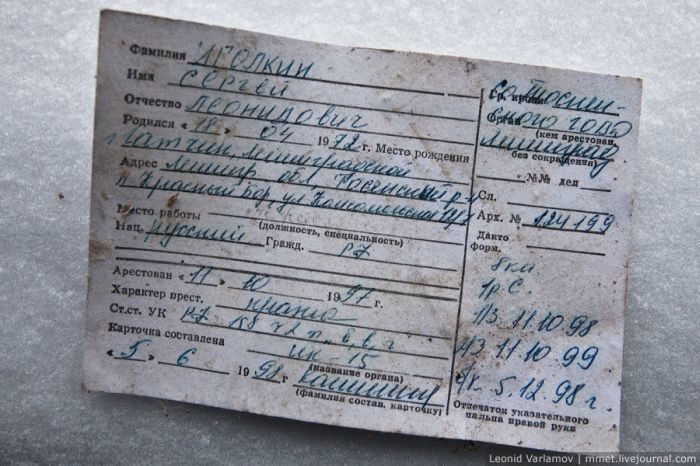 Фамилия Иголкин
Имя Сергей
Отчество Леонидович
Родился « 18 » 04 1972 г. Место рождения
г. Гатчин, Ленинградской
Адрес Ленингр. обл. Тосненский р-н
п. Красный Бор, ул. Комсомольская
Место работы
(должность, специальность)
Нац. русский Гражд. РФ
Арестован « 11 » 10 1997 г.
Характер прест. кража
Ст.ст. УК РФ 158 ч2 п. „б, в, г"
Карточка составлена ИК-15
(название органа)
« 5 » 6 1998 г
(фамилия состав. карточку)
Гр. крови
Орган
(кем арестован,
без сокращений)
№№ дел
Сл.
Арх. № 124199
Дакто
форм.
1р.С.
11.10.98
11.10.99
5.12.98 г.
Отпечаток указательного
пальца правой руки
Leonid Varlamov | mmet.livejournal.com